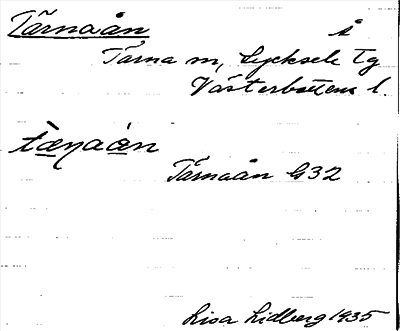 Tärnaån Å
Tärna sn, Lycksele tg
Västerbottens l.
tæ̀ṇaå̀n
Tärnaån G32
Lisa Lidberg 1935